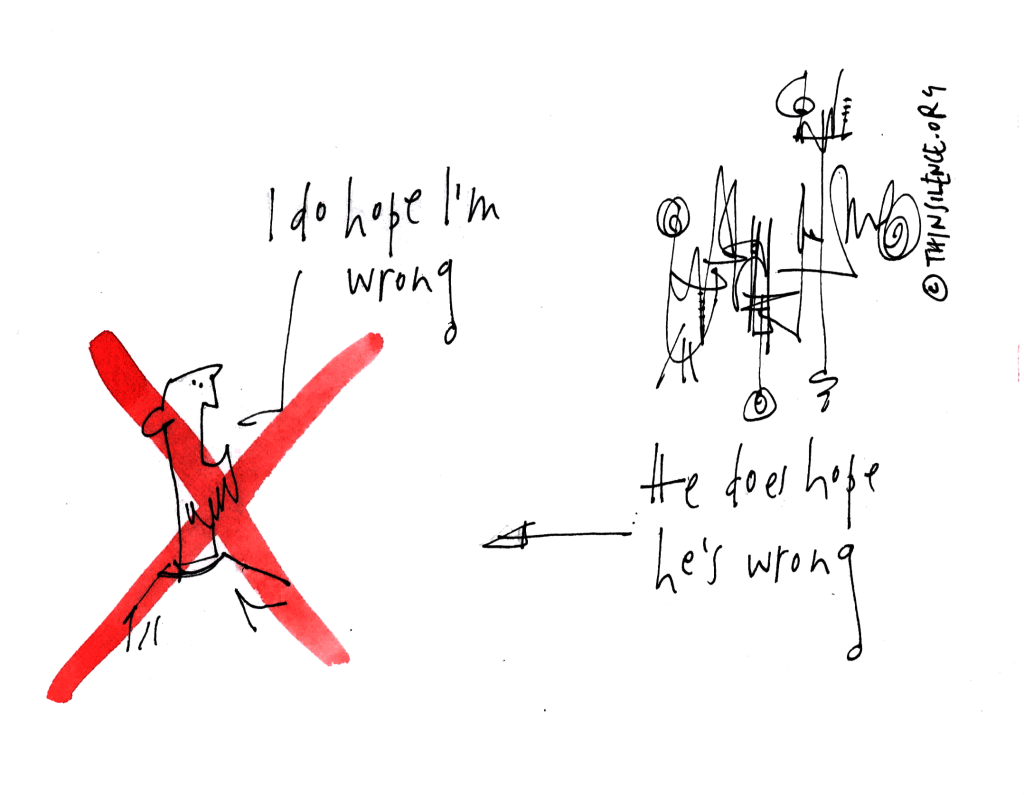 I do hope I'm
wrong
He does hope
he's wrong
© THINSILENCE.ORG